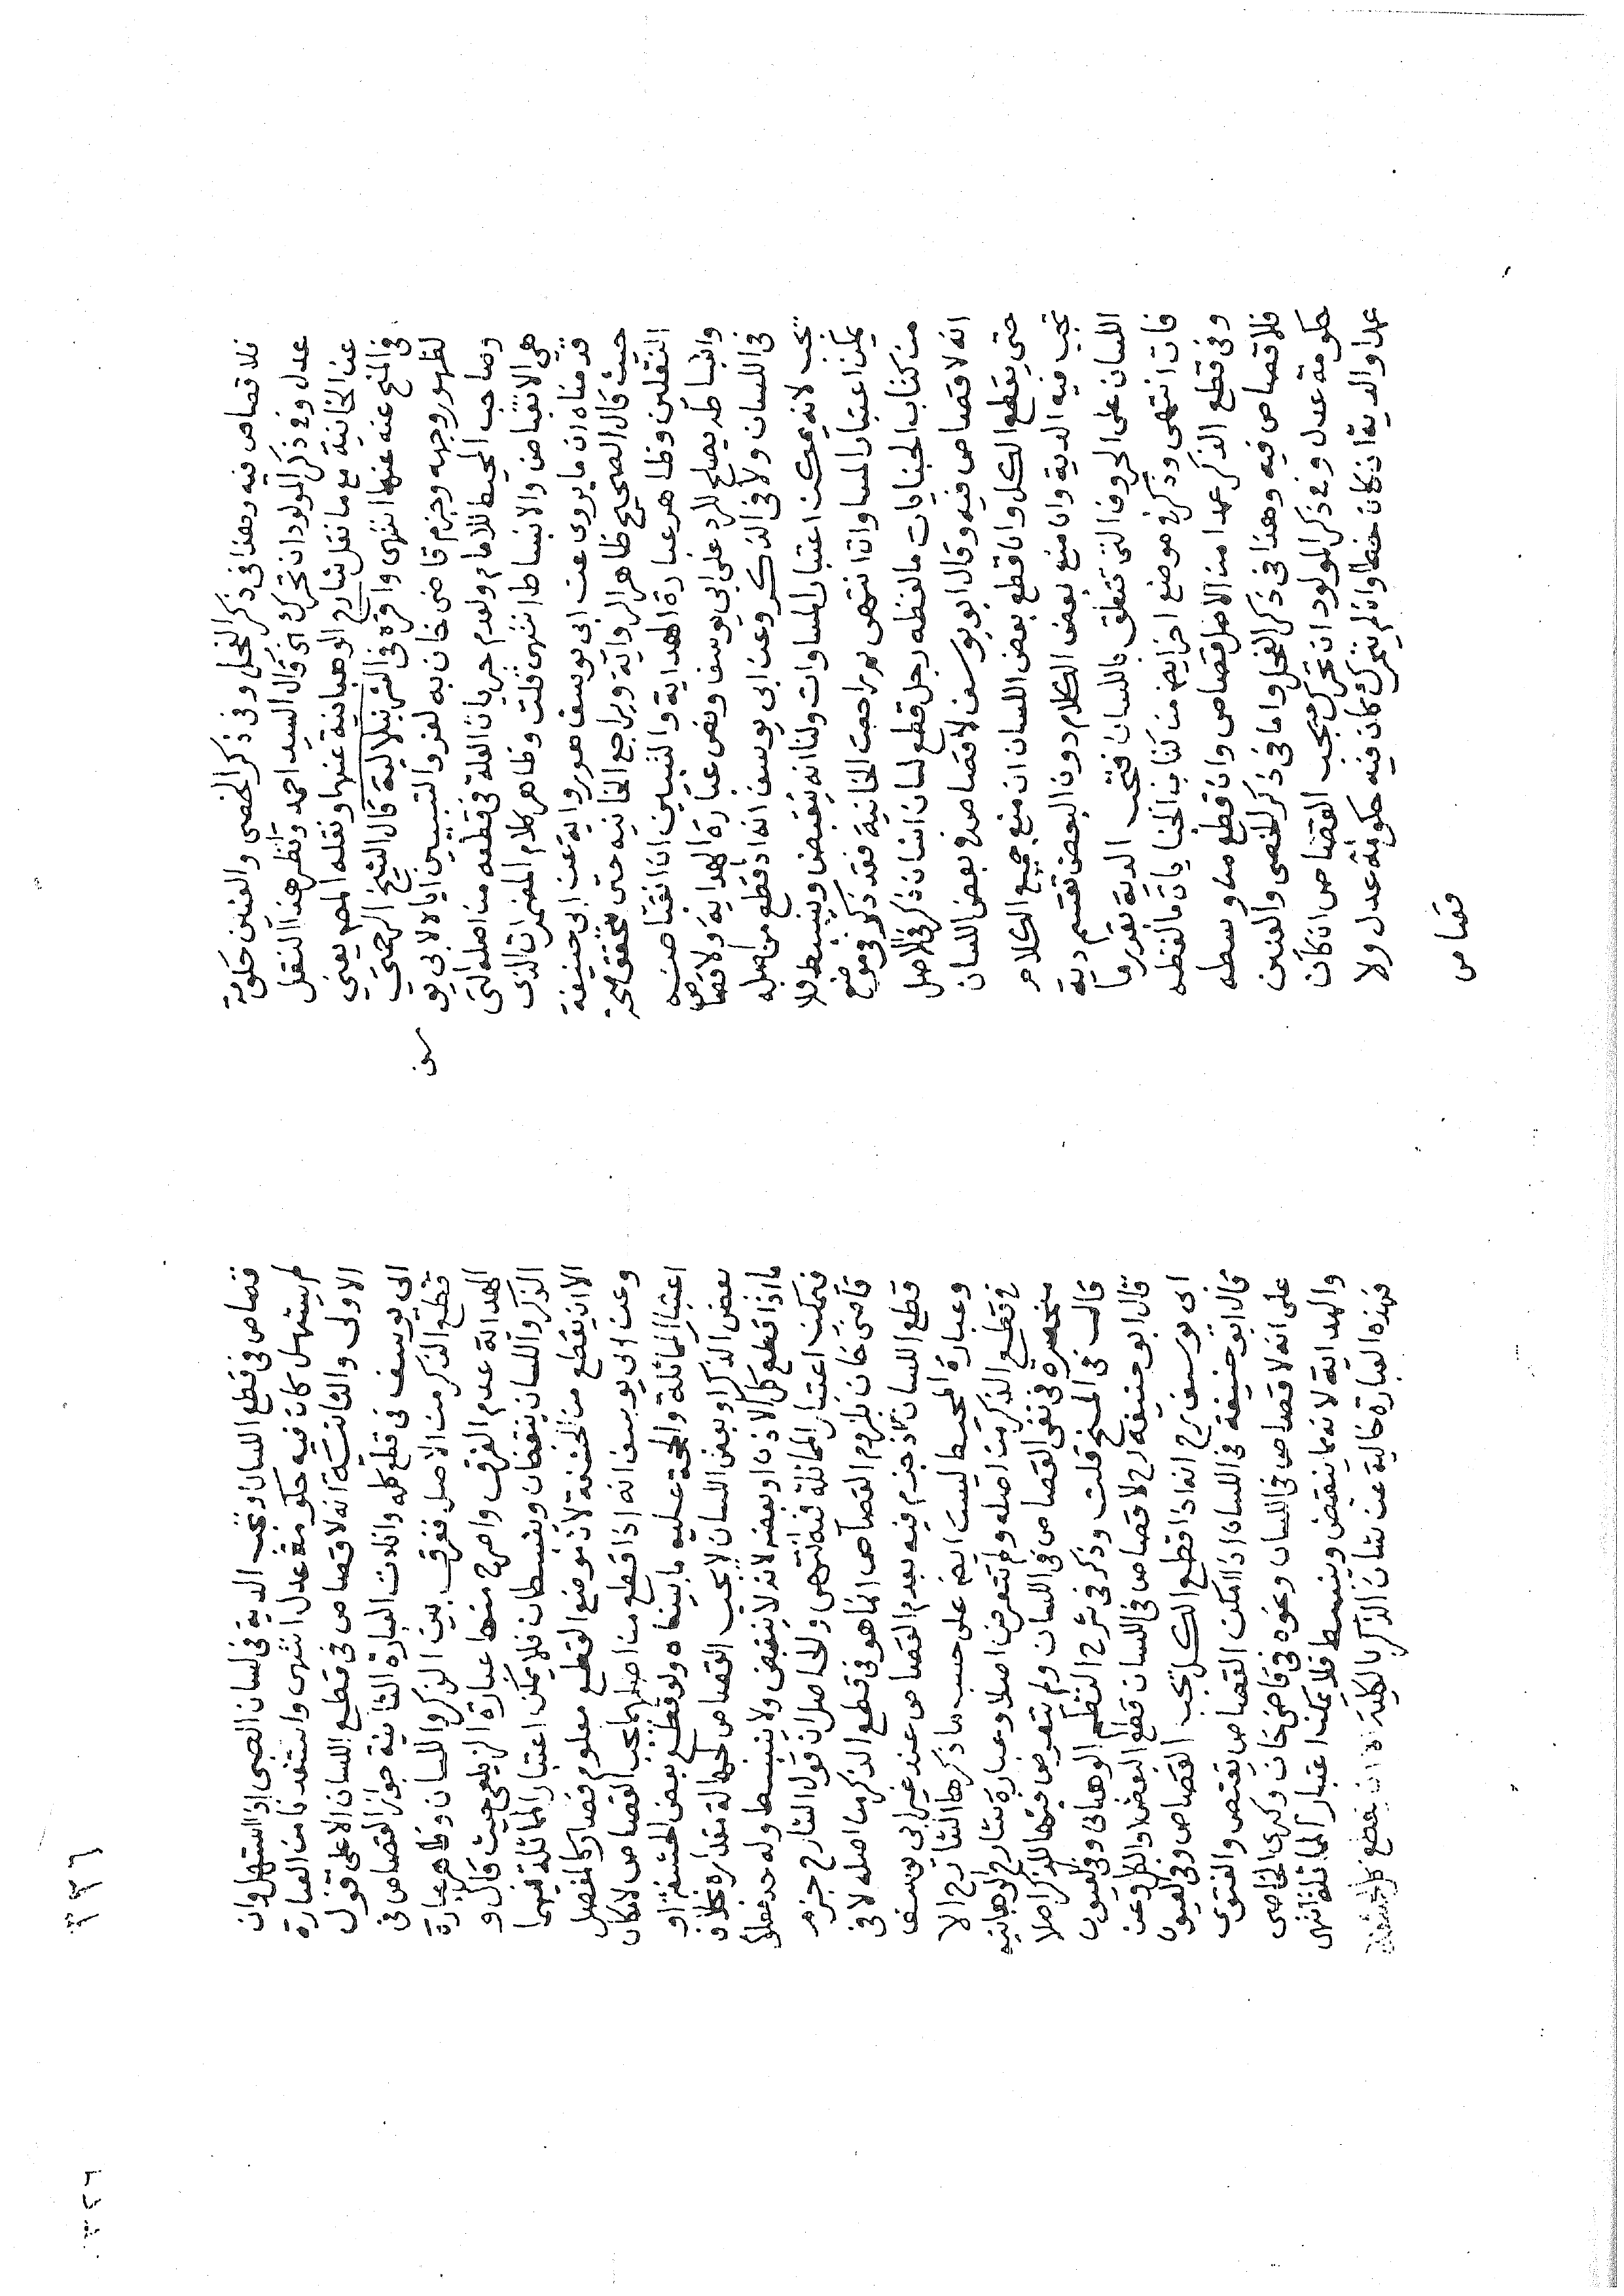 فلا قصاص فيه وهذا في ذكر الفحل وفي ذكر الخصي والعنين حكومة
عدل وفي ذكر المولود ان تحرك الخ قال السيد احمد ونظر هذا النقل
عن الخانية مع ما نقل شارح الوهبانية عنها ونقله المصر يعني
في المنح عنه عنها انتهى واقره في الشرنبلالية قال الشيخ الرحمتي
لظهور وجهه وجزم قاضي خان به لعزو التبيين اياه لابي يو
سف
وصاحب المحيط للامام ولعدم جريان العلة في قطعه من اصله التي
هي الانقباض والانبساط انتهى قلت وظاهر كلام المضمرات الذي
قدمناه ان ما يروى عن ابي يوسف هو رواية عن ابي حنيفة
حيث قال الصحيح ظاهر الرواية ويراجع الخانيه حتى تحقق صحة
النقلين وظاهر عبارة الهداية والتبيين ان انقباضه
وانبساطه يصلح للرد على ابي يوسف ونص عبارة الهداية ولا قصاص
في اللسان ولا في الذكر وعن ابي يوسف انه اذا قطع من اصله
يجب لانه يمكن اعتبار المساوات ولنا انه ينقبض وينبسط فلا
يمكن اعتبار المساواة انتهى ثم راجعت الخانية فقد ذكر في موضع
من كتاب الجنايات ما لفظه رجل قطع لسان انسان ذكر في الاصل
انه لا قصاص فيه وقال ابو يوسف لا قصاص في بعض اللسان
حتى يقطع الكل وان قطع بعض اللسان ان منع جميع الكلام
تجب فيه الدية وان منع بعض الكلام دون البعض تقسم دية
اللسان على الحروف التي تتعلق باللسان فتجب الدية بقدر ما
فات انتهى وذكر في موضع اخر ايض من كتاب الجنايات ما لفظه
وفي قطع الذكر عمدا من الاصل قصاص وان قطع من وسطه
فلا قصاص فيه وهذا في ذكر الفحل واما في ذكر الخصي والعنين
حكومة عدل وفي ذكر المولود ان تحرك يجب القصاص ان كان
عمدا والدية ان كان خطا وان لم يتحرك كان فيه حكومة عدل ولا
قصاص
٣٢٦
قصاص في قطع اللسان وتجب الدية في لسان الصبي اذا استهل وان
لم يستهل كان فيه حكومة عدل انتهى واستفدنا من العبارة
الاولى والثانية انه لا قصاص في قطع اللسان الا على قول
ابي يوسف في قطع كله وافادت العبارة الثانية جواز القصاص في
قطع الذكر من الاصل ففرق بين الذكر واللسان وظاهر عبارة
الهداية عدم الفرق واصرح منها عبارة الزيلعي حيث قال و
الذكر واللسان ينقبضان وينبسطان فلا يمكن اعتبار المماثلة فيهما
الا ان يقطع من الحشفة لان موضع القطع معلوم فصار كالمفصل
وعن ابي يوسف انه اذا قطع من اصلهما يجب القصاص لامكان
اعتبار المماثلة والحجة عليه ما بيناه ولو قطع بعض الحشفة او
بعض الذكر او بعض اللسان لا يجب القصاص لجهالة مقداره بخلاف
ما اذا قطع كل الاذن او بعضه لانه لا ينقبض ولا ينبسط وله حد معلوم
فيمكن اعتبار المماثلة فيه انتهى والحاصل ان قول الشارح جزم
قاضي خان بلزوم القصاص انما هو في قطع الذكر من اصله لا في
قطع اللسان اذ جزم فيه بعدم القصاص عند غير ابي يوسف
وعبارة المحيط ليست ايض على حسب ما ذكرها الشارح الا
في قطع الذكر من اصله ولم تتعرض اصلا وعبارة شارح الوهبانيه
منحصرة في نفي القصاص في اللسان ولم يتعرض فيها للذكر اصلا
قال في المنح قلت وذكر في شرح النظم الوهباني وفي العيون
قال ابو حنيفة رح لا قصاص في اللسان قطع البعض او الكل وعن
ابي يوسف رح انه اذا قطع الكل يجب القصاص وفي العيون
قال ابو حنيفة في اللسان اذا امكن القصاص يقتص والفتوى
على انه لا قصاص في اللسان ونحوه في قاضي خان وكبرى الخاصي
والهداية لانه مما ينقبض وينبسط فلا يمكن اعتبار المماثلة انتهى
فهذه العبارة خالية عن شان الذكر بالكلية